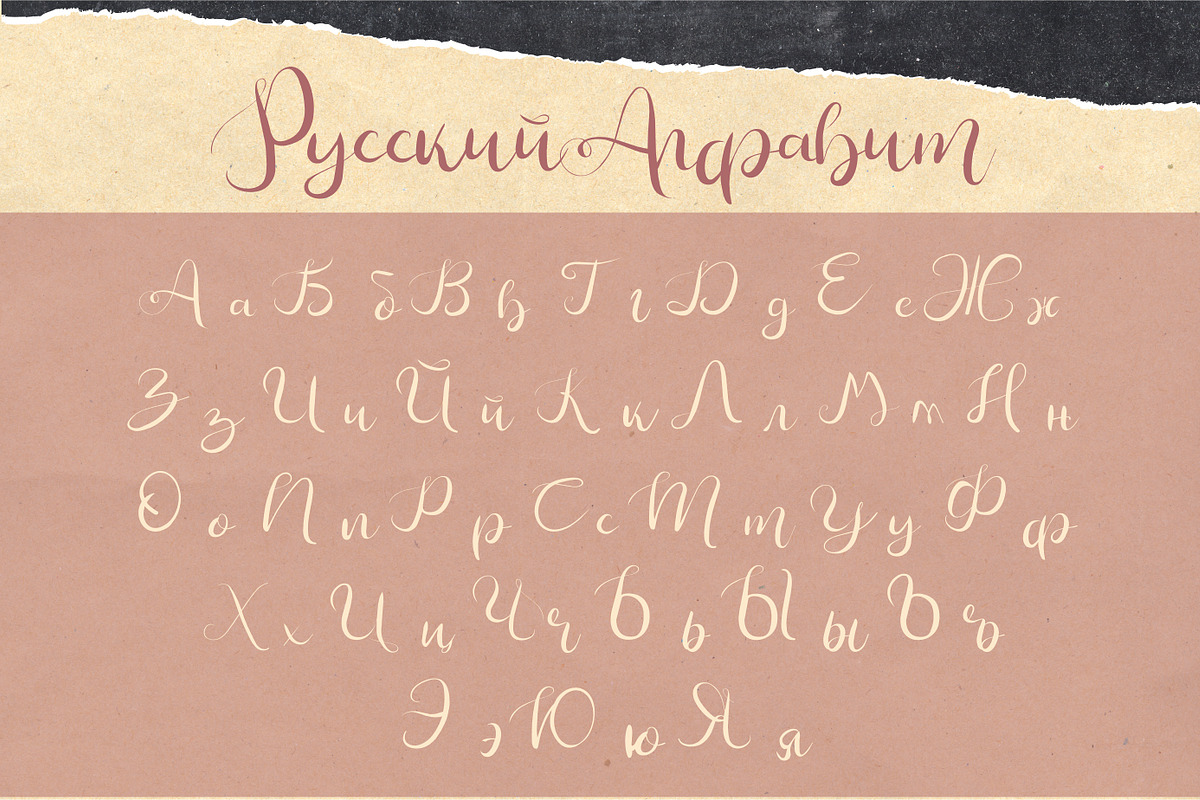 Русский Алфавит
А а Б б В в Г г Д д Е е Ж ж
З з И и Й й К к Л л М м Н н
О о П п Р р С с Т т У у Ф ф
Х х Ц ц Ч ч Ь ь Ы ы Ъ ъ
Э э Ю ю Я я